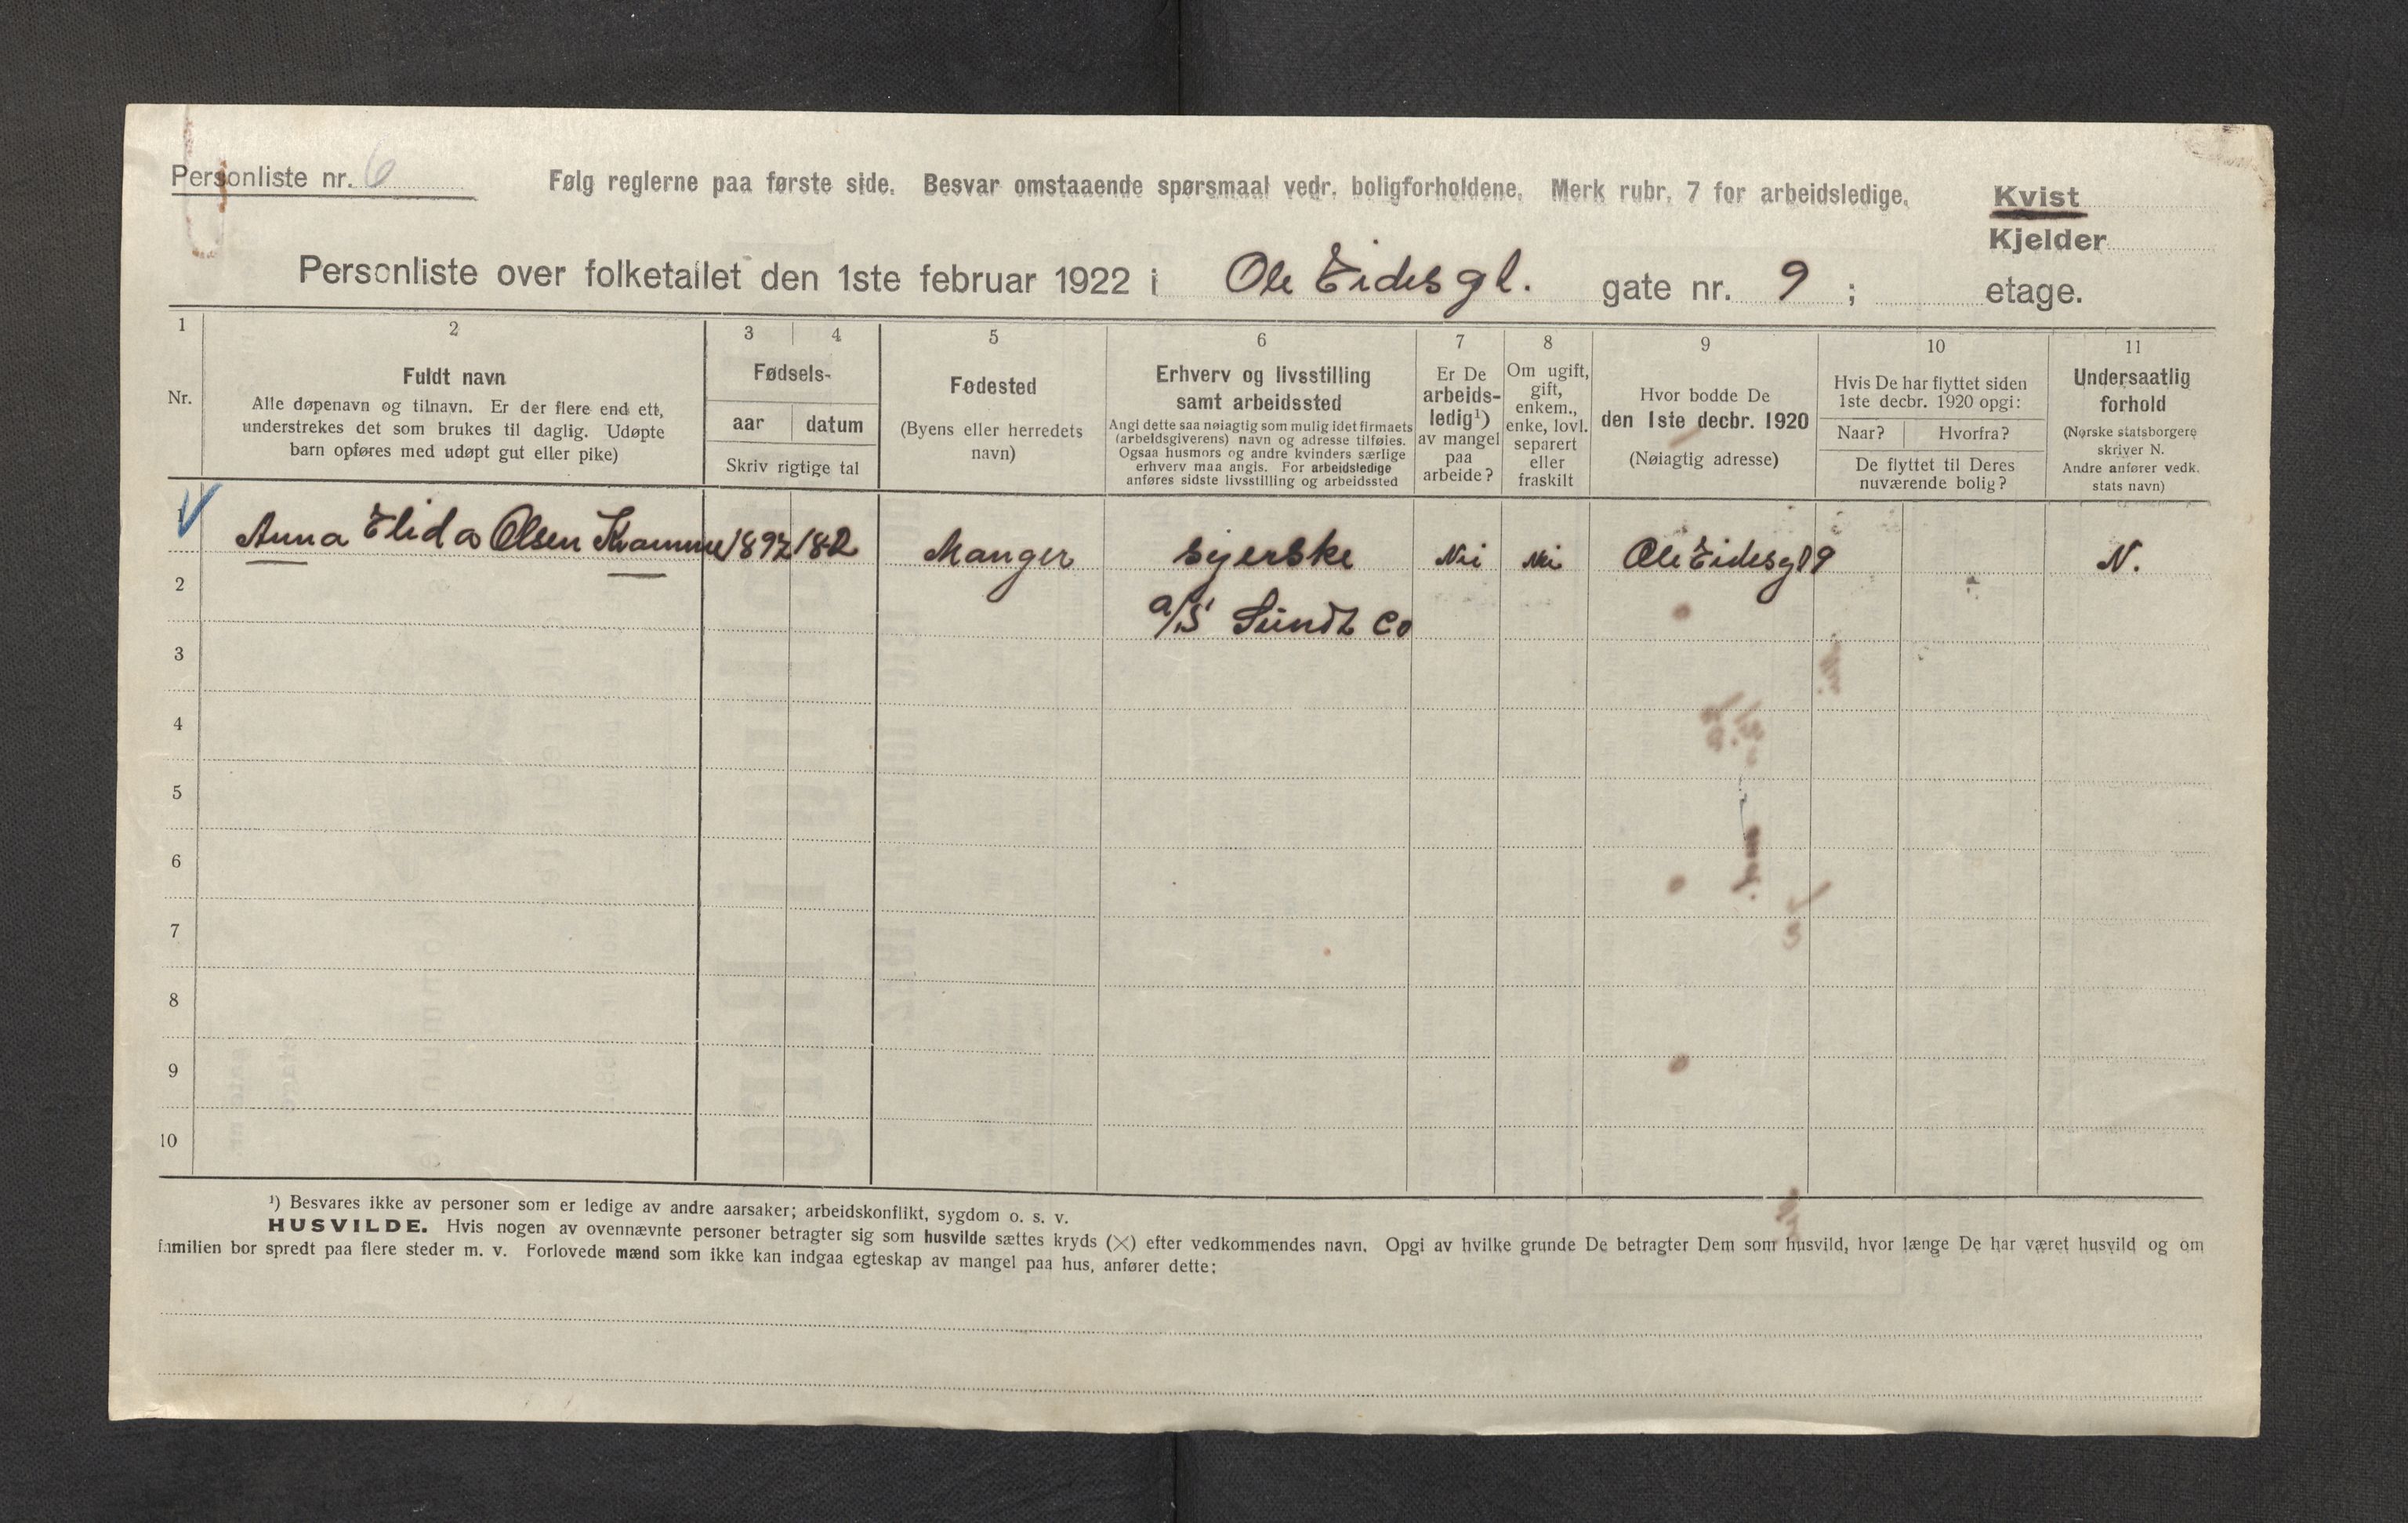 Personliste nr. 6
Følg reglerne paa første side. Besvar omstaaende spørsmaal vedr. boligforholdene. Merk rubr. 7 for arbeidsledige.
Kvist
Kjelder
Personliste over folketallet den 1ste februar 1922 i Ole Eidesgt. gate nr. 9 ; etage.
1
Nr.
2
Fuldt navn
Alle døpenavn og tilnavn. Er der flere end ett,
understrekes det som brukes til daglig. Udøpte
barn opføres med udøpt gut eller pike)
3 4
Fødsels-
aar datum
Skriv rigtige tal
5
Fødested
(Byens eller herredets
navn)
6
Erhverv og livsstilling
samt arbeidssted
Angi dette saa nøiagtig som mulig idet firmaets
(arbeidsgiverens) navn og adresse tilføies.
Ogsaa husmors og andre kvinders særlige
erhverv maa angis. For arbeidsledige
anføres sidste livsstilling og arbeidssted
7
Er De
arbeids-
ledig¹)
av mangel
paa
arbeide?
8
Om ugift,
gift,
enkem.,
enke, lovl.
separert
eller
fraskilt
9
Hvor bodde De
den 1ste decbr. 1920
(Nøiagtig adresse)
10
Hvis De har flyttet siden
1ste decbr. 1920 opgi:
Naar? Hvorfra?
De flyttet til Deres
nuværende bolig?
11
Undersaatlig
forhold
(Norske statsborgere
skriver N.
Andre anfører vedk.
stats navn)
Anna Elida Olsen Kvamme 1897 18/2 Manger syerske Nei Nei Ole Eidesgt 9 N.
2 a/s Sundt Co
3
4
5
6
7
8
9
10
¹) Besvares ikke av personer som er ledige av andre aarsaker; arbeidskonflikt, sygdom o. s. v.
HUSVILDE. Hvis nogen av ovennævnte personer betragter sig som husvilde sættes kryds (×) efter vedkommendes navn. Opgi av hvilke grunde De betragter Dem som husvild, hvor længe De har været husvild og om
familien bor spredt paa flere steder m. v. Forlovede mænd som ikke kan indgaa egteskap av mangel paa hus, anfører dette: